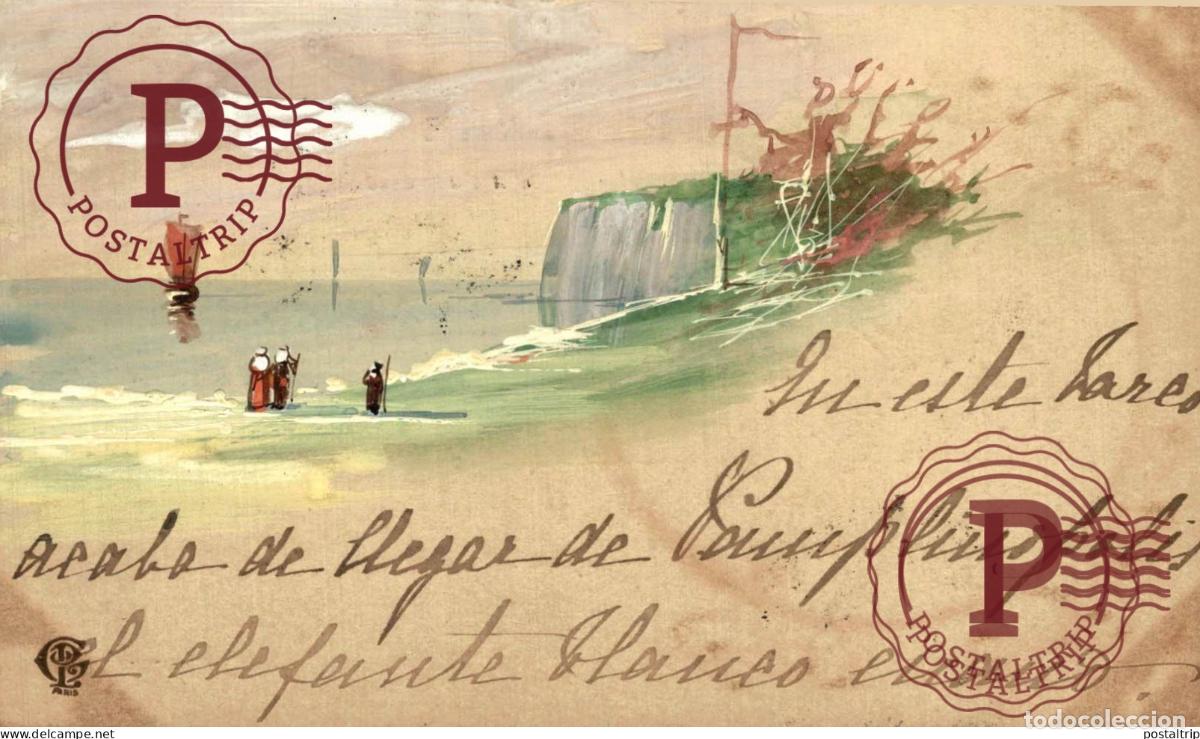 P
POSTALTRIP
En este barco
acabo de llegar de
P
POSTALTRIP
POSTALTRIP
El elefante blanco
PARIS
todocoleccion
www.delcampe.net
postaltrip